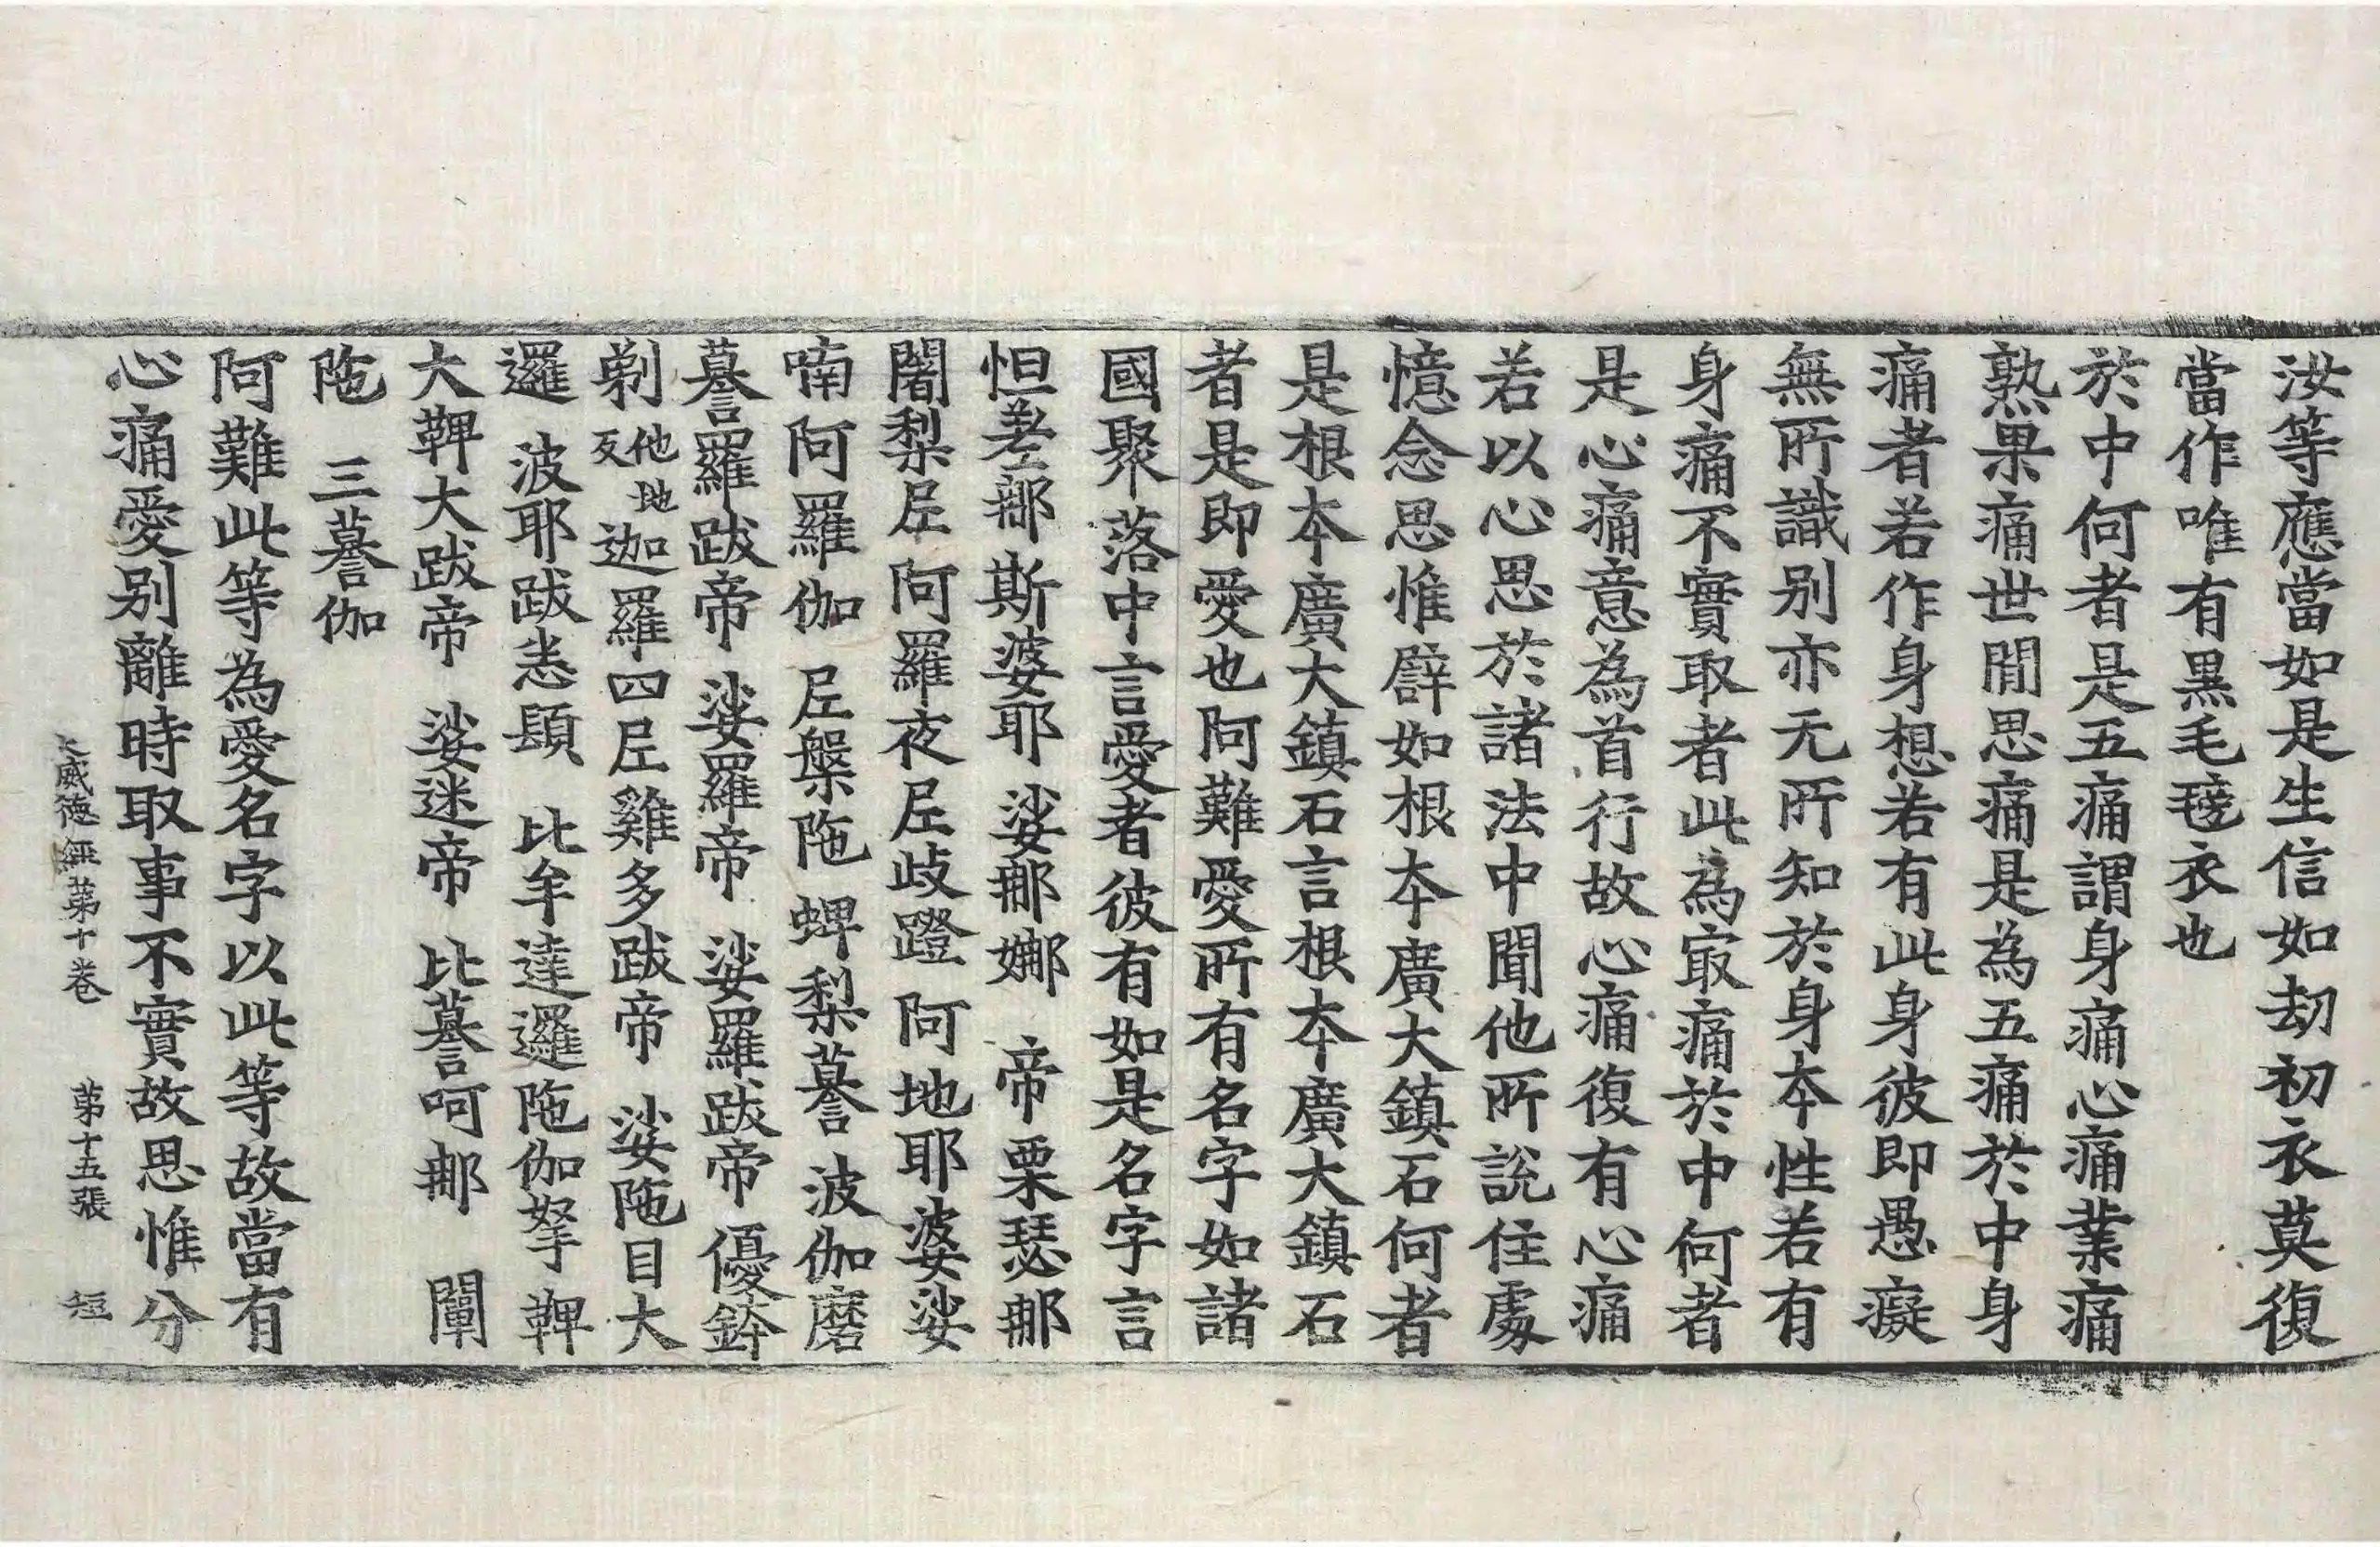 汝等應當如是生信如劫初衣莫復
當作唯有黒毛毯衣也
於中何者是五痛謂身痛心痛業痛
熟果痛世間思痛是為五痛於中身
痛者若作身想若有此身彼即愚癡
無所識别亦无所知於身本性若有
身痛不實取者此為㝡痛於中何者
是心痛意為首行故心痛復有心痛
若以心思於諸法中聞他所說住處
憶念思惟譬如根本廣大鎮石何者
是根本廣大鎮石言根本廣大鎮石
者是即愛也阿難愛所有名字如諸
國聚落中言愛者彼有如是名字言
怛差𨚗斯婆耶 娑𨚗娜 帝栗瑟𨚗
闍梨𡰱阿羅夜𡰱歧蹬 阿地耶婆娑
喃阿羅伽 𡰱槃陁蜱梨謩波伽磨
謩羅跋帝 娑羅帝 娑羅跋帝優鉢
剃他地反迦羅四𡰱雞多跋帝 娑陁目大
邏 波耶跋恙䫂 比牟達邏陁伽拏鞞
大鞞大跋帝 娑迷帝 比謩呵𨚗 闡
陁 三謩伽
阿難此等為愛名字以此等故當有
心痛愛别離時取事不實故思惟分
大威德經第十卷 第十五張 短